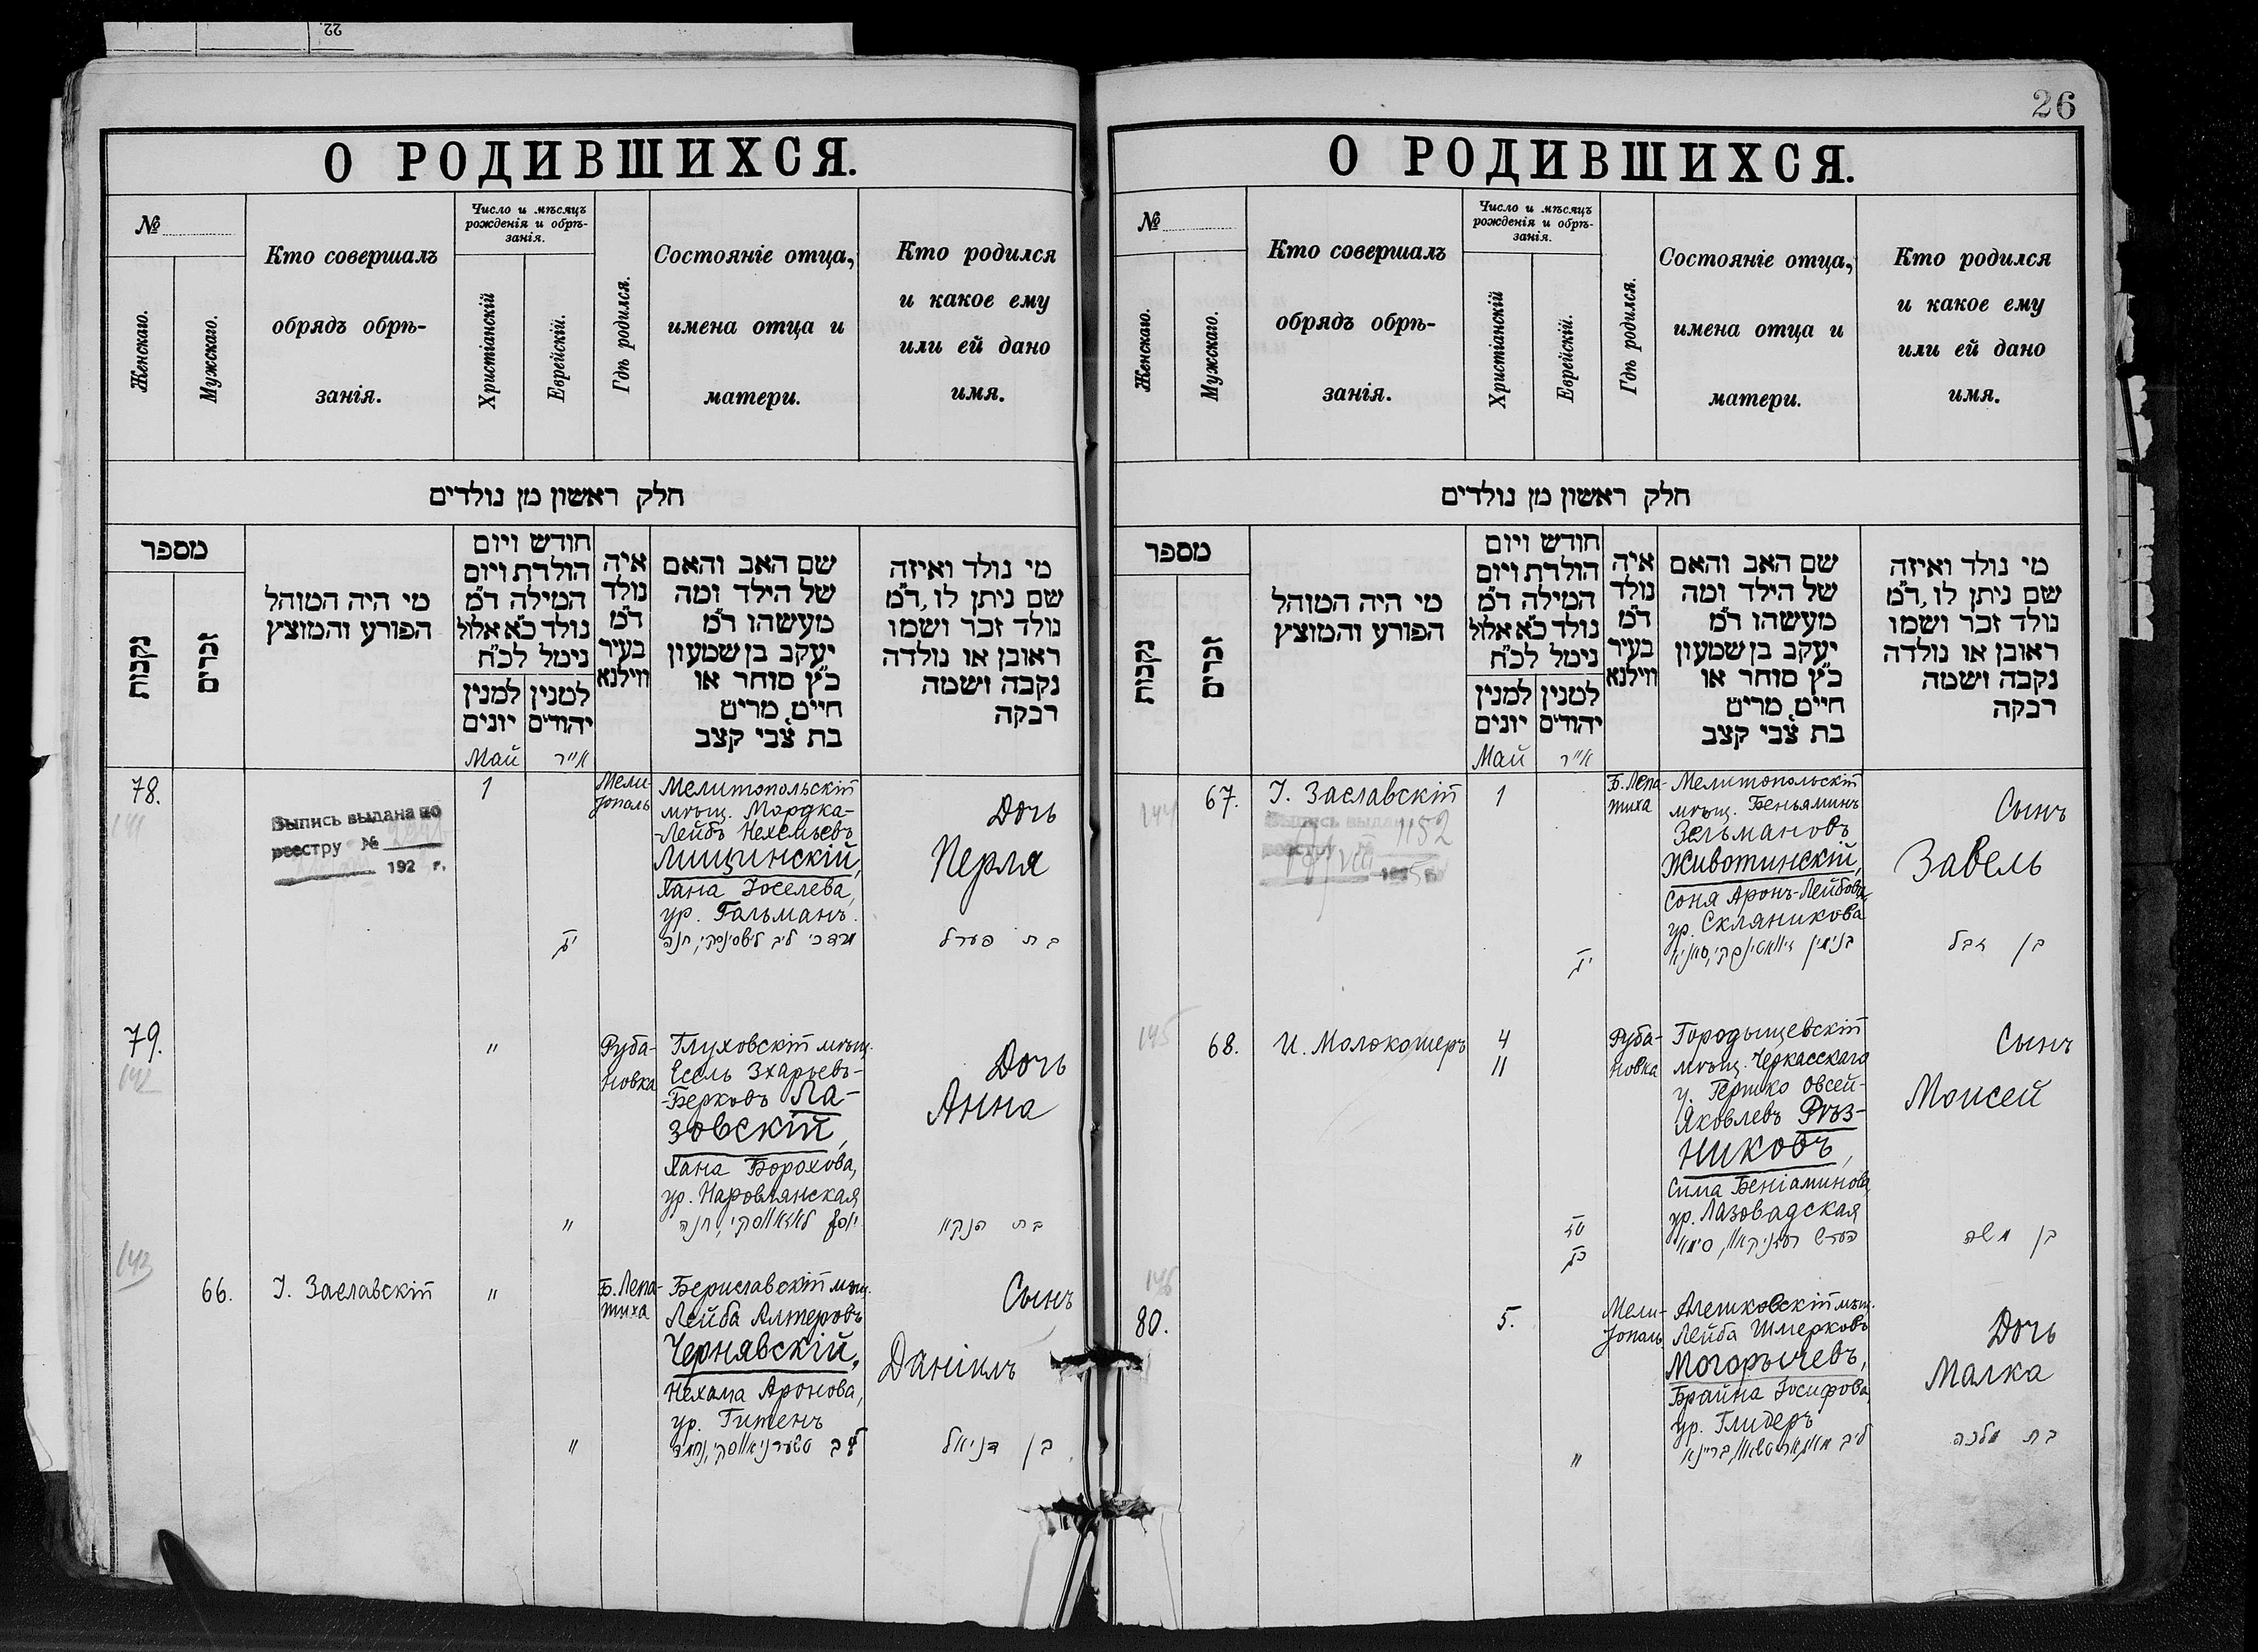 22.
О РОДИВШИХСЯ.
№
Женскаго.
Мужскаго.
Кто совершалъ
обрядъ обрѣ-
занія.
Число и мѣсяцъ
рожденія и обрѣ-
занія.
Христіанскій
Еврейскій.
Гдѣ родился.
Состояніе отца,
имена отца и
матери.
Кто родился
и какое ему
или ей дано
имя.
חלק ראשון מן נולדים
מספר
נקבות
זכרים
מי היה המוהל
הפורע והמוצץ
חודש ויום
הולדת ויום
המילה ד״מ
נולד כ״א אלול
נימל לכ״ח
למנין
יונים
למנין
יהודים
איה
נולד
ד״מ
בעיר
ווילנא
שם האב והאם
של הילד ומה
מעשהו ד״מ
יעקב בן שמעון
כ״ץ סוחר או
חייט, מרים
בת צבי קצב
מי נולד ואיזה
שם ניתן לו, ד״מ
נולד זכר ושמו
ראובן או נולדה
נקבה ושמה
רבקה
Май
אייר
78.
141
Выпись выдана по
реестру №
192 г.
1
Мели-
тополь
Мелитопольскій
мѣщ. Мордка-
-Лейбъ Нехемьевъ
Лищинскій,
Хана Іоселева,
ур. Гальманъ.
Дочь
Перля
בת פערל
79.
142
"
Руба-
новка
Глуховскій мѣщ.
Есель Зхарьевъ-
-Берковъ Ла-
зовскій,
Хана Борохова,
ур. Наровлянская
"
Дочь
Анна
143
66.
І. Заславскій
"
Б. Лепа-
тиха
Бериславскій мѣщ.
Лейба Алтеровъ
Чернявскій,
Нехама Аронова,
ур. Гитенъ
"
Сынъ
Даніилъ
בן דניאל
26
О РОДИВШИХСЯ.
№
Женскаго.
Мужскаго.
Кто совершалъ
обрядъ обрѣ-
занія.
Число и мѣсяцъ
рожденія и обрѣ-
занія.
Христіанскій
Еврейскій.
Гдѣ родился.
Состояніе отца,
имена отца и
матери.
Кто родился
и какое ему
или ей дано
имя.
חלק ראשון מן נולדים
מספר
נקבות
זכרים
מי היה המוהל
הפורע והמוצץ
חודש ויום
הולדת ויום
המילה ד״מ
נולד כ״א אלול
נימל לכ״ח
למנין
יונים
למנין
יהודים
איה
נולד
ד״מ
בעיר
ווילנא
שם האב והאם
של הילד ומה
מעשהו ד״מ
יעקב בן שמעון
כ״ץ סוחר או
חייט, מרים
בת צבי קצב
מי נולד ואיזה
שם ניתן לו, ד״מ
נולד זכר ושמו
ראובן או נולדה
נקבה ושמה
רבקה
Май
אייר
144
67.
І. Заславскій
1152
1
Б. Лепа-
тиха
Мелитопольскій
мѣщ. Беньяминъ
Зельмановъ
Животинскій,
Соня Аронъ-Лейбова,
ур. Скляникова
Сынъ
Завель
בן זבל
145
68.
И. Молокошеръ
4
11
Руба-
новка
Городыщевскій
мѣщ. Черкасскаго
у. Гершко Овсей-
Яковлевъ Рѣз-
никовъ,
Сима Беніаминова,
ур. Лазовадская
Сынъ
Моисей
בן משה
146
80.
5.
Мели-
тополь
Алешковскій мѣщ.
Лейба Шмерковъ
Могорычевъ,
Брайна Іосифова,
ур. Глидеръ
"
Дочь
Малка
בת מלכה